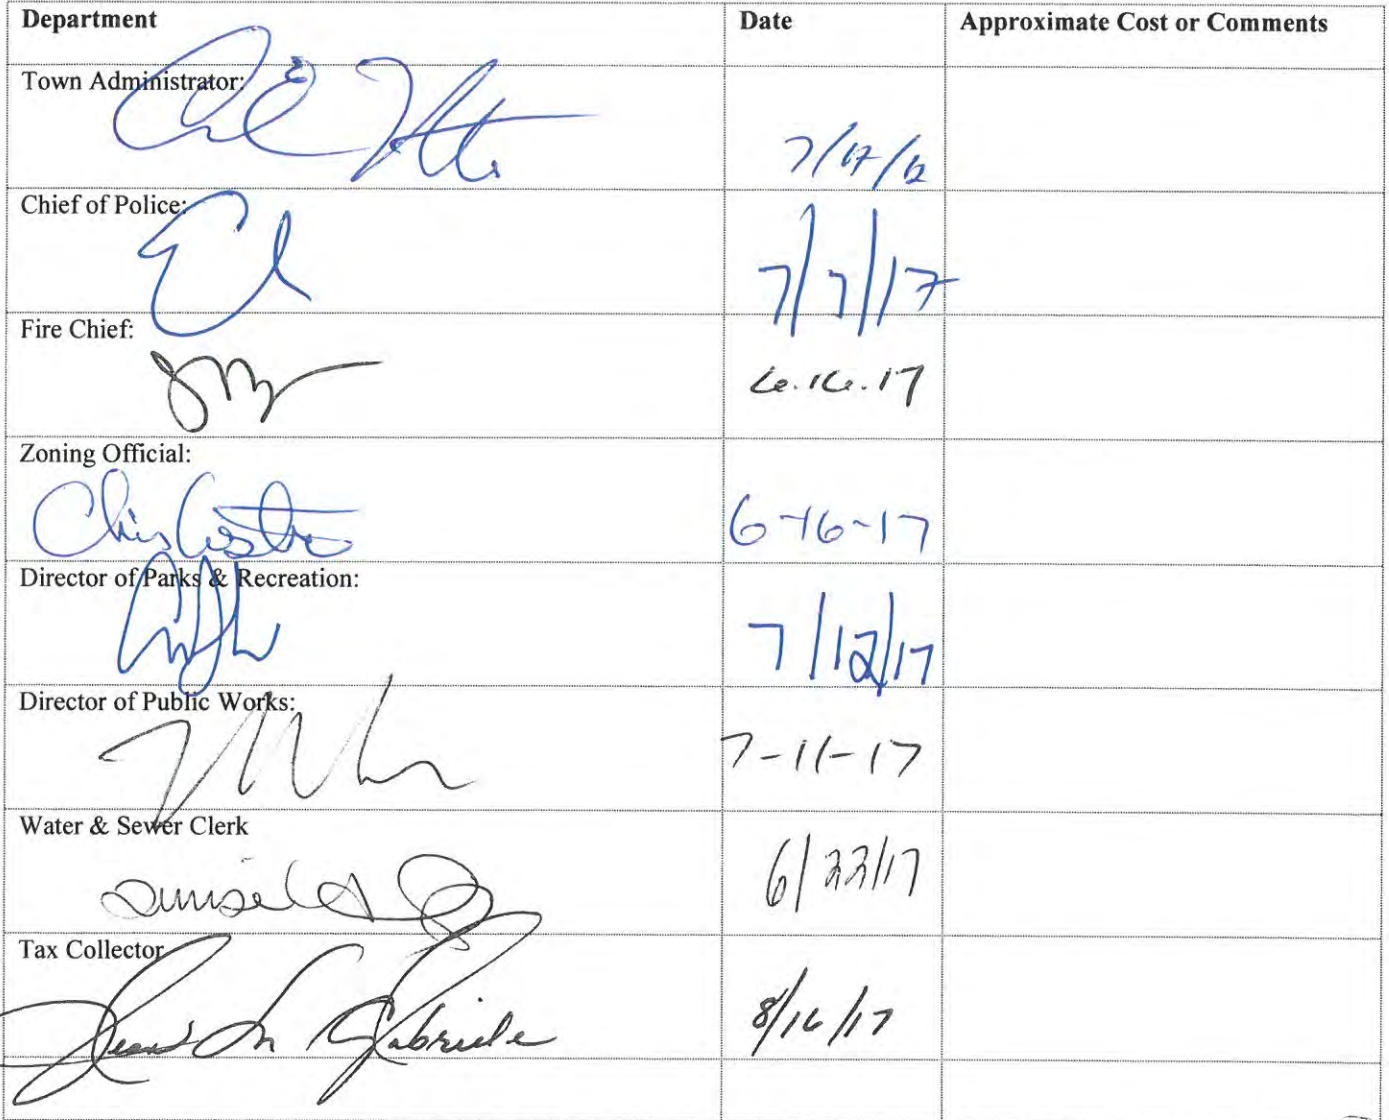 Department Date Approximate Cost or Comments
Town Administrator:
Chief of Police: 7/7/17
Fire Chief: 6.16.17
Zoning Official:
Chris Costa 6-16-17
Director of Parks & Recreation: 7/12/17
Director of Public Works: 7-11-17
Water & Sewer Clerk 6/22/17
Tax Collector
Gabriele 8/16/17